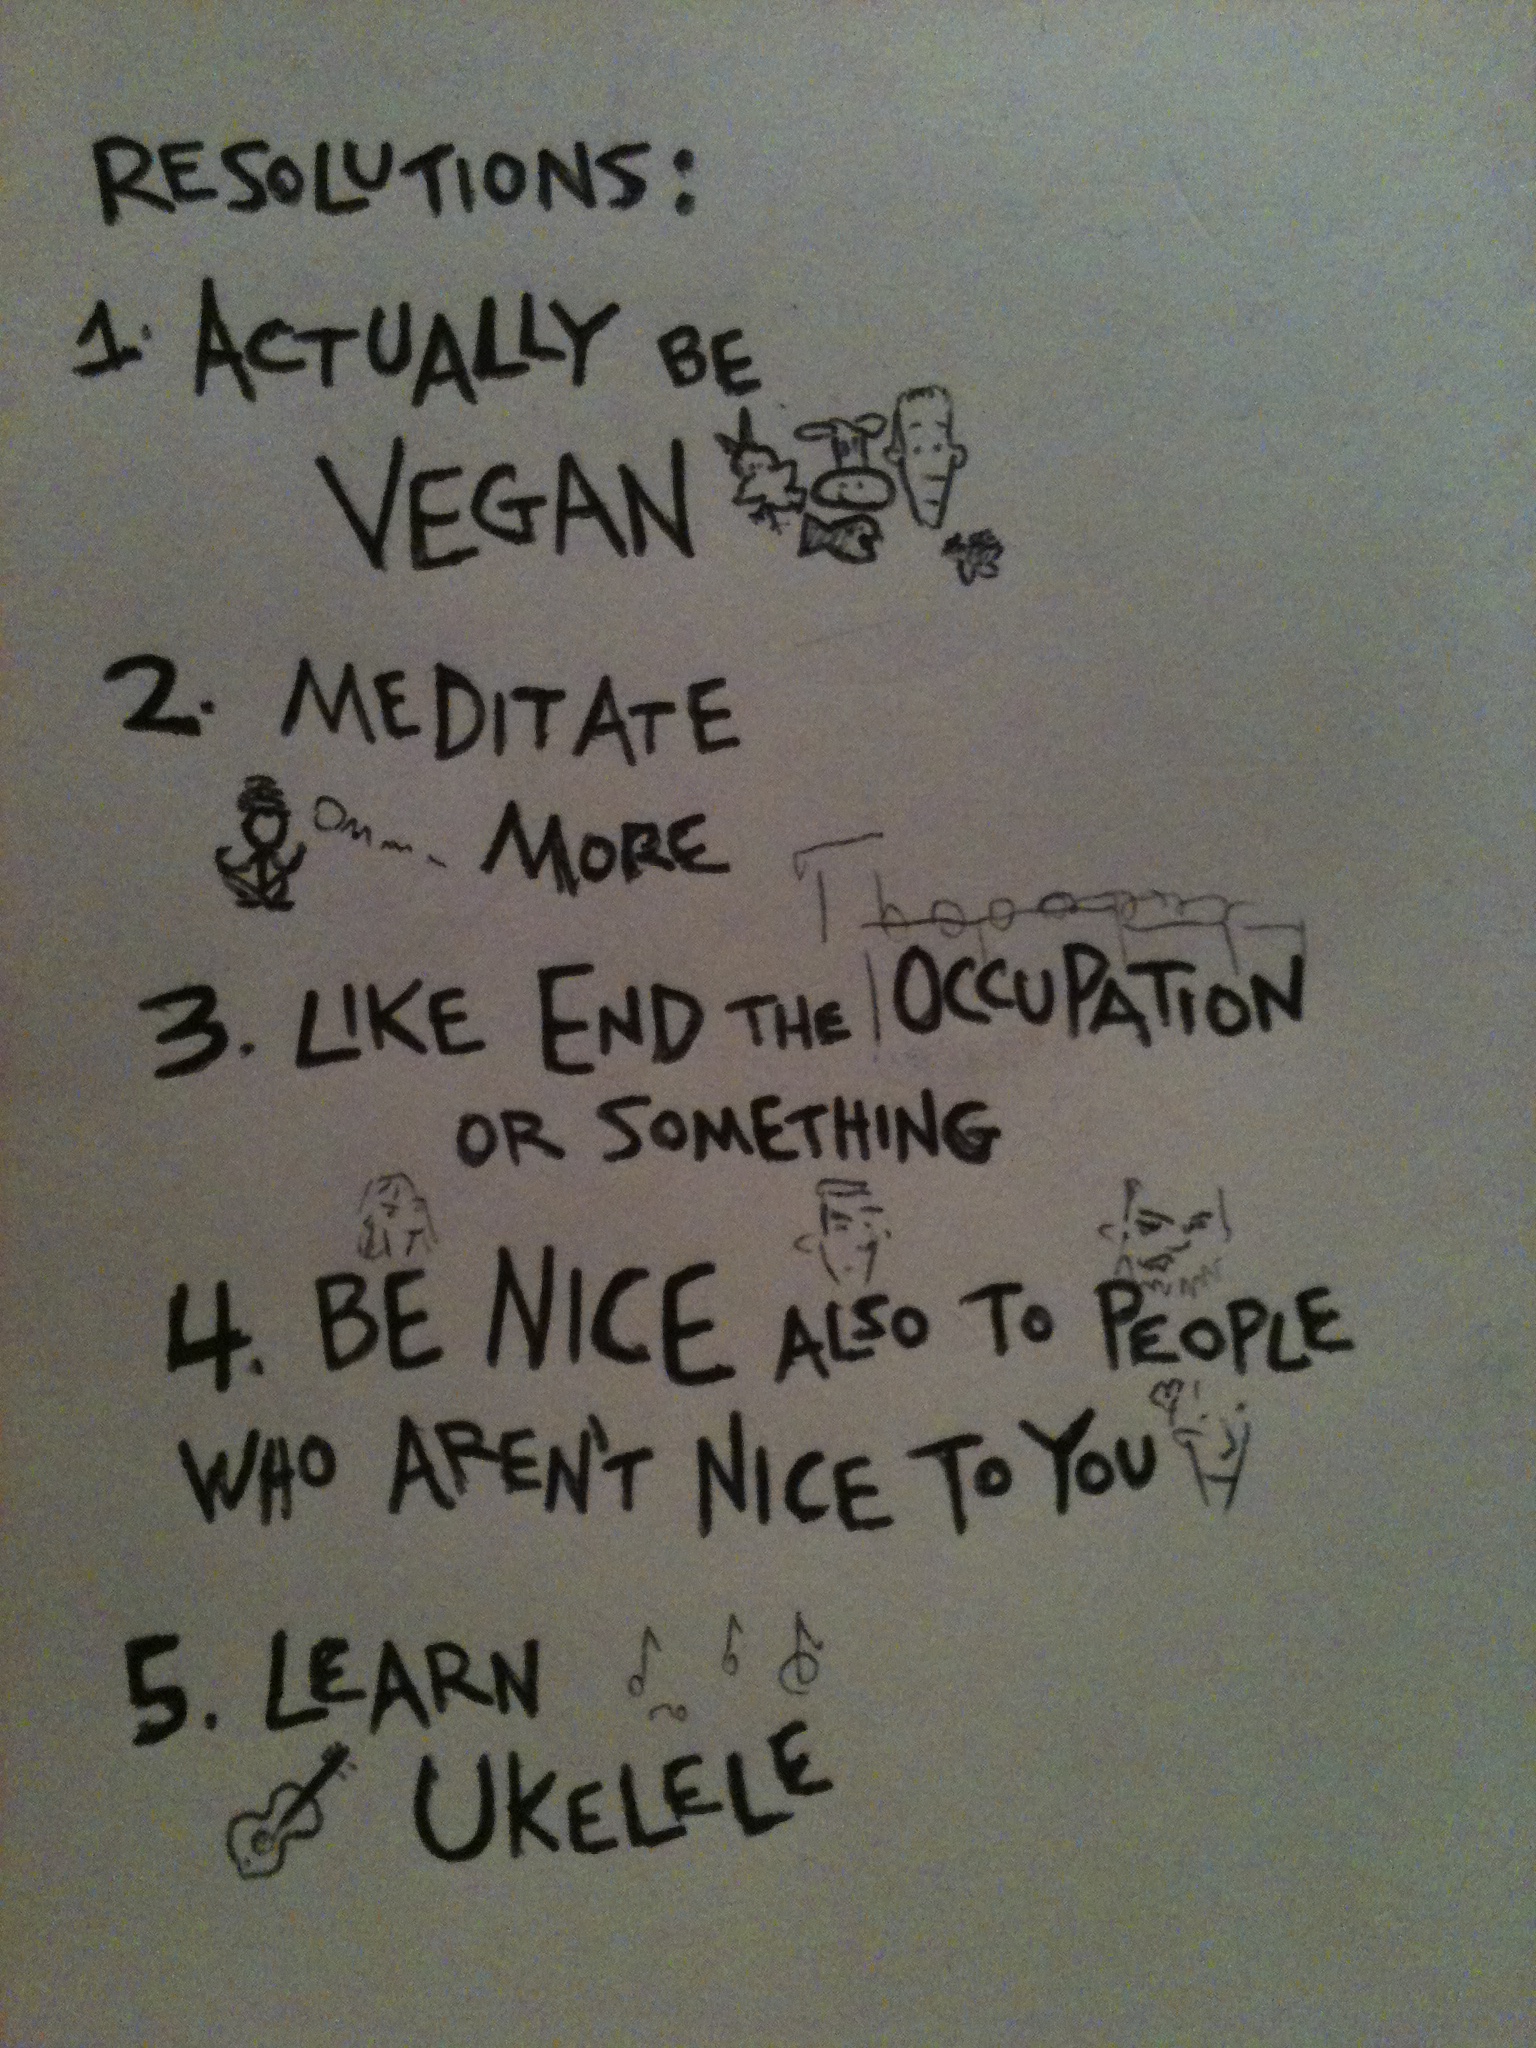 RESOLUTIONS:
1. ACTUALLY BE
VEGAN
2. MEDITATE
Omm...
MORE
3. LIKE END THE OCCUPATION
OR SOMETHING
4. BE NICE ALSO TO PEOPLE
WHO AREN'T NICE TO YOU
5. LEARN
UKELELE